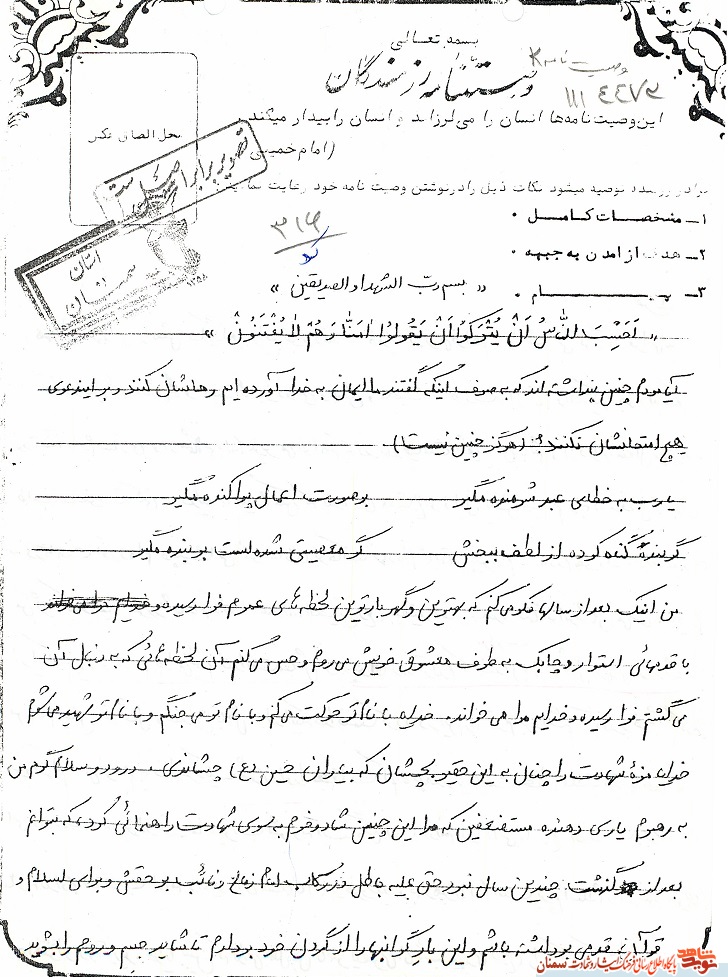 بسمه تعالی
وصیت نامه
وصیتنامه رزمندگان
۱۱۱ ٤٤۷۲
این وصیت‌نامه‌ها انسان را می‌لرزاند و انسان را بیدار میکند
(امام خمینی)
محل الصاق عکس
تصویر برابر اصل است
استان سمنان
برادر رزمنده توصیه میشود نکات ذیل را در نوشتن وصیت نامه خود رعایت نمائید
۱ـ مشخصات کامل .
۳۱۶
۲ـ هدف از آمدن به جبهه .
۳ـ پیام .
« بسم ربّ الشهداء والصدیقین »
« اَحَسِبَ النّاسُ اَنْ یُتْرَکُوا اَنْ یَقُولُوا امَنّا وَ هُمْ لا یُفْتَنُونْ »
آیا مردم چنین پنداشته اند که به صرف اینکه گفتند ما ایمان به خدا آورده ایم رهاشان کنند و بر این دعوی
هیچ امتحانشان نکنند؟ (هرگز چنین نیست)
یا رب به خطای عبد شرمنده مگیر بر صورت اعمال پراکنده مگیر
گر بنده گنه کرده از لطف ببخش گر معصیتی شده است بر بنده مگیر
من اینک بعد از سالها فکر می کنم که بهترین و گهربارترین لحظه های عمرم فرا رسیده و
با قدمهائی استوار و چابک به طرف معشوق خویش می روم و حس می کنم آن لحظه هائی که به دنبال آن
می گشتم فرا رسیده و خدایم مرا می خواند. خدایا با نام تو حرکت می کنم و با نام تو می جنگم و با نام تو شهید می شوم
خدایا مزۀ شهادت را چنان به این حقیر بچشان که بیاران حسین (ع) چشاندی. درود و سلام گرم من
به رهبرم یاری دهنده مستضعفین که مرا این چنین شاد و خرم به سوی شهادت راهنمائی کرد، که بتوانم
بعد از گذشت چندین سال نبرد حق علیه باطل در رکاب امام زمان و نائب بر حقش و برای اسلام و
قرآن قدمی برداشته باشم و این بار گرانبها را از گردن خود بردارم تا شاید جسم و روحم را بشوید
نوید شاهد
پایگاه اطلاع رسانی فرهنگ ایثار و شهادت سمنان